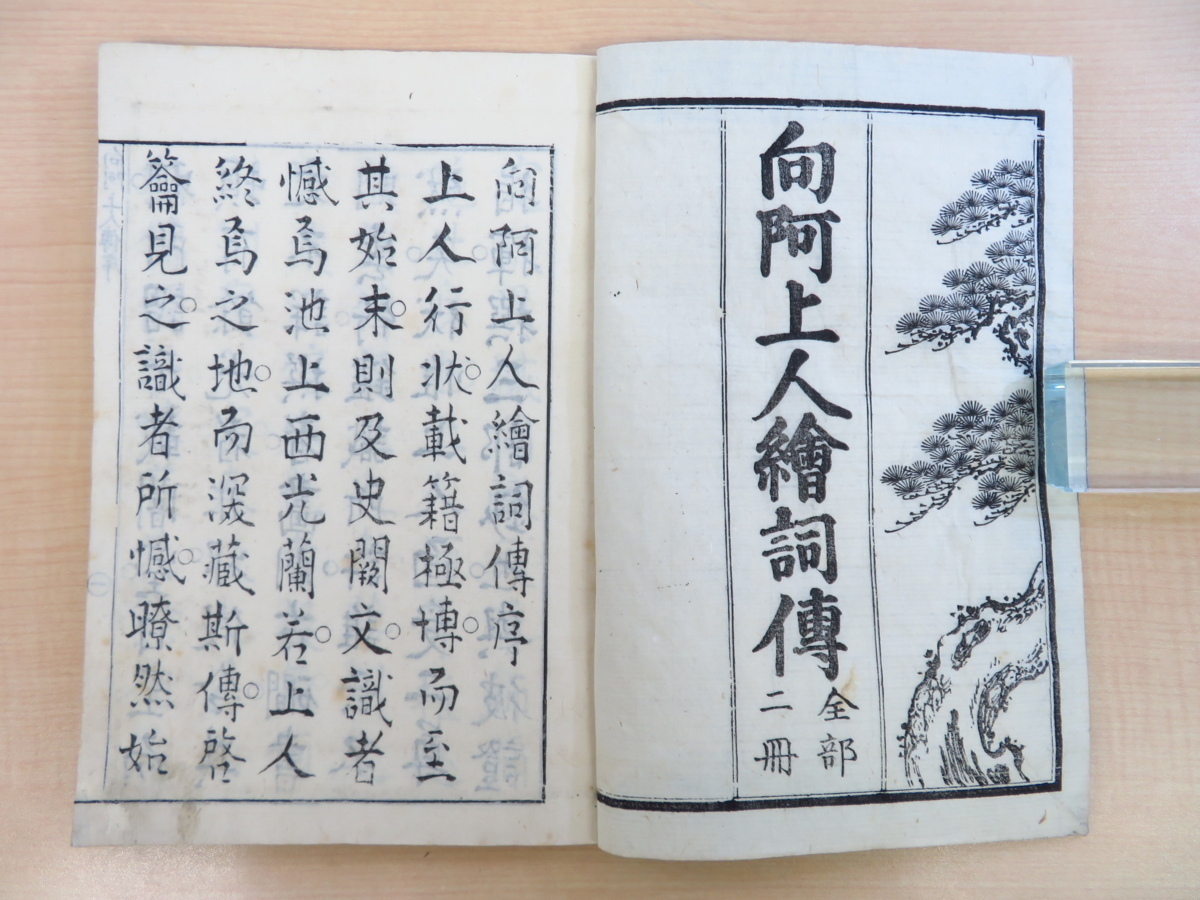 向阿上人繪詞傳
全部
二冊
向阿上人繪詞傳序
上人行状載籍極博而至
其始末則及史闕文識者
憾焉池上西光蘭若上人
終焉之地而深藏斯傳啓
籥見之識者所憾暸然始